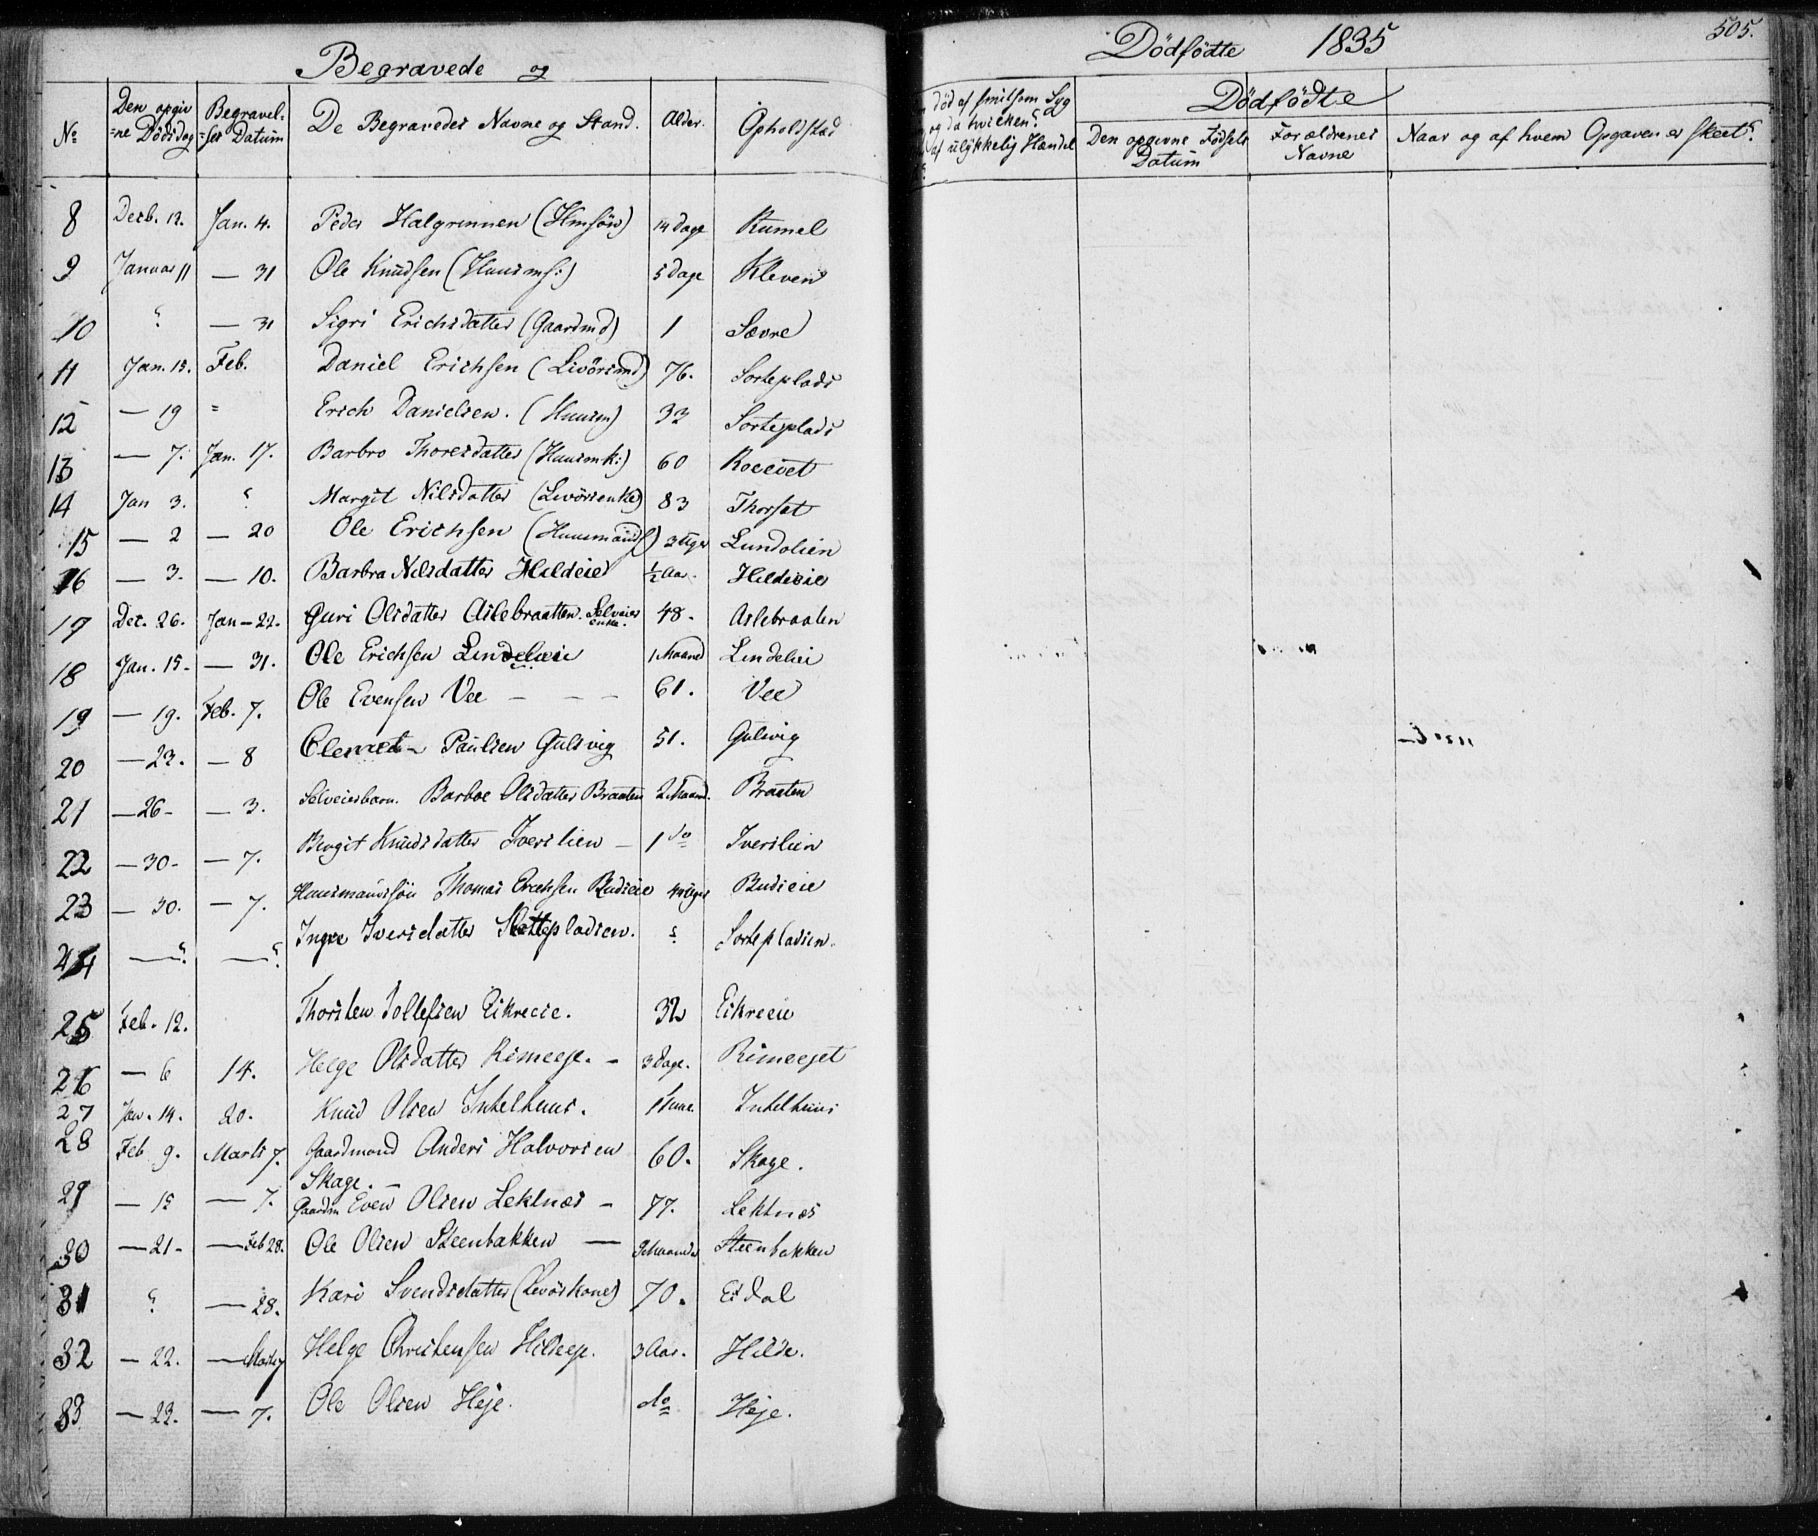 Begravede og
Dödfödte 1835
505.
No
Den opgiv
=ne Dödsdag
Begravel=
=ses Datum
De Begravedes Navne og Stand.
Alder.
Opholdstad
død af smitsom Syg
og da hvilken?
af ulykkelig Hændel
Dödfödte
Den opgivne Födsels
Datum
Forældrenes
Navne
Naar og af hvem Opgaven er skeet?
8 Decb. 12. Jan. 4. Peder Halgrimsen 14 Dage Rumel
9 Januar 11 — 31 Ole Knudsen (Huusms:) 5 Dage Kleven
10 " — 31 Sigri Erichsdatter (Gaardmd) 1 Sævre
11 Jan. 15. Feb. Daniel Erichsen (Livörsmd) 76. Sorteplads
12 — 19 = Erich Danielsen. (Huusm) 32 Sorteplads
13 — 7. Jan. 17. Barbro Thoresdatter (Huusmk:) 60
14 Jan 3. " Margit Nilsdatter (Livörsenke) 83 Thorset
15 — 2 — 20 Ole Erichsen (Huusmands) 3 Uger Lundolien
16 — 3. — 10. Barbra Nilsdatter Hildeie ½ Aar. Hildeie
17 Dec. 26. Jan — 22. Guri Olsdatter Aslebraatten. Selveier
enke. 48. Aslebraaten
18 Jan. 15 — — 31. Ole Erichsen Lindelien 1 Maaned Lindelien
19 — 19. Feb. 7. Ole Evensen Vee — — — 61. Vee
20 — 23. — 8 Clemet Paulsen Gulsvig 51. Gulsvig
21 — 26 — — 3. Selveierbarn. Barboe Olsdatter Braaten 2 Maand. Braaten
22 — 30 — — 7. Birgit Knudsdatter Iverslien — 1 do Iverslien
23 — 30. — 7. Huusmandssön Thomas Erichsen Rudseie 4 Uger Rudseie
24 — " — " Ingre Iversdatter Sortepladsen. " Sortepladsen.
25 Feb. 12. Thorsten Tollefsen Eikreeie. 32 Eikreeie
26 — 6 14. Helge Olsdatter Rimeeje. — 3 Dage. Rimeejet
27 Jan. 14. 20. Knud Olsen Inkelhuus. Inkelhuus
28 Feb 9. Marts 7. Gaardmand Anders Halvorsen
Skage. — 60. Skage.
29 — 15 — 7. Gaardm Even Olsen Lektnæs — 77. Lektnæs
30 — 21 — — Feb 28. Ole Olsen Steenbakken — Maaneder Steenbakken
31 " — 28. Kari Svendsdatter (Livörskone) 70. Eidal
32 — 22. — Marts 7 Helge Christensen Hildeeje. 3 Aar. Hilde.
33 — 22. — 7. Ole Olsen Heje. do Heje.